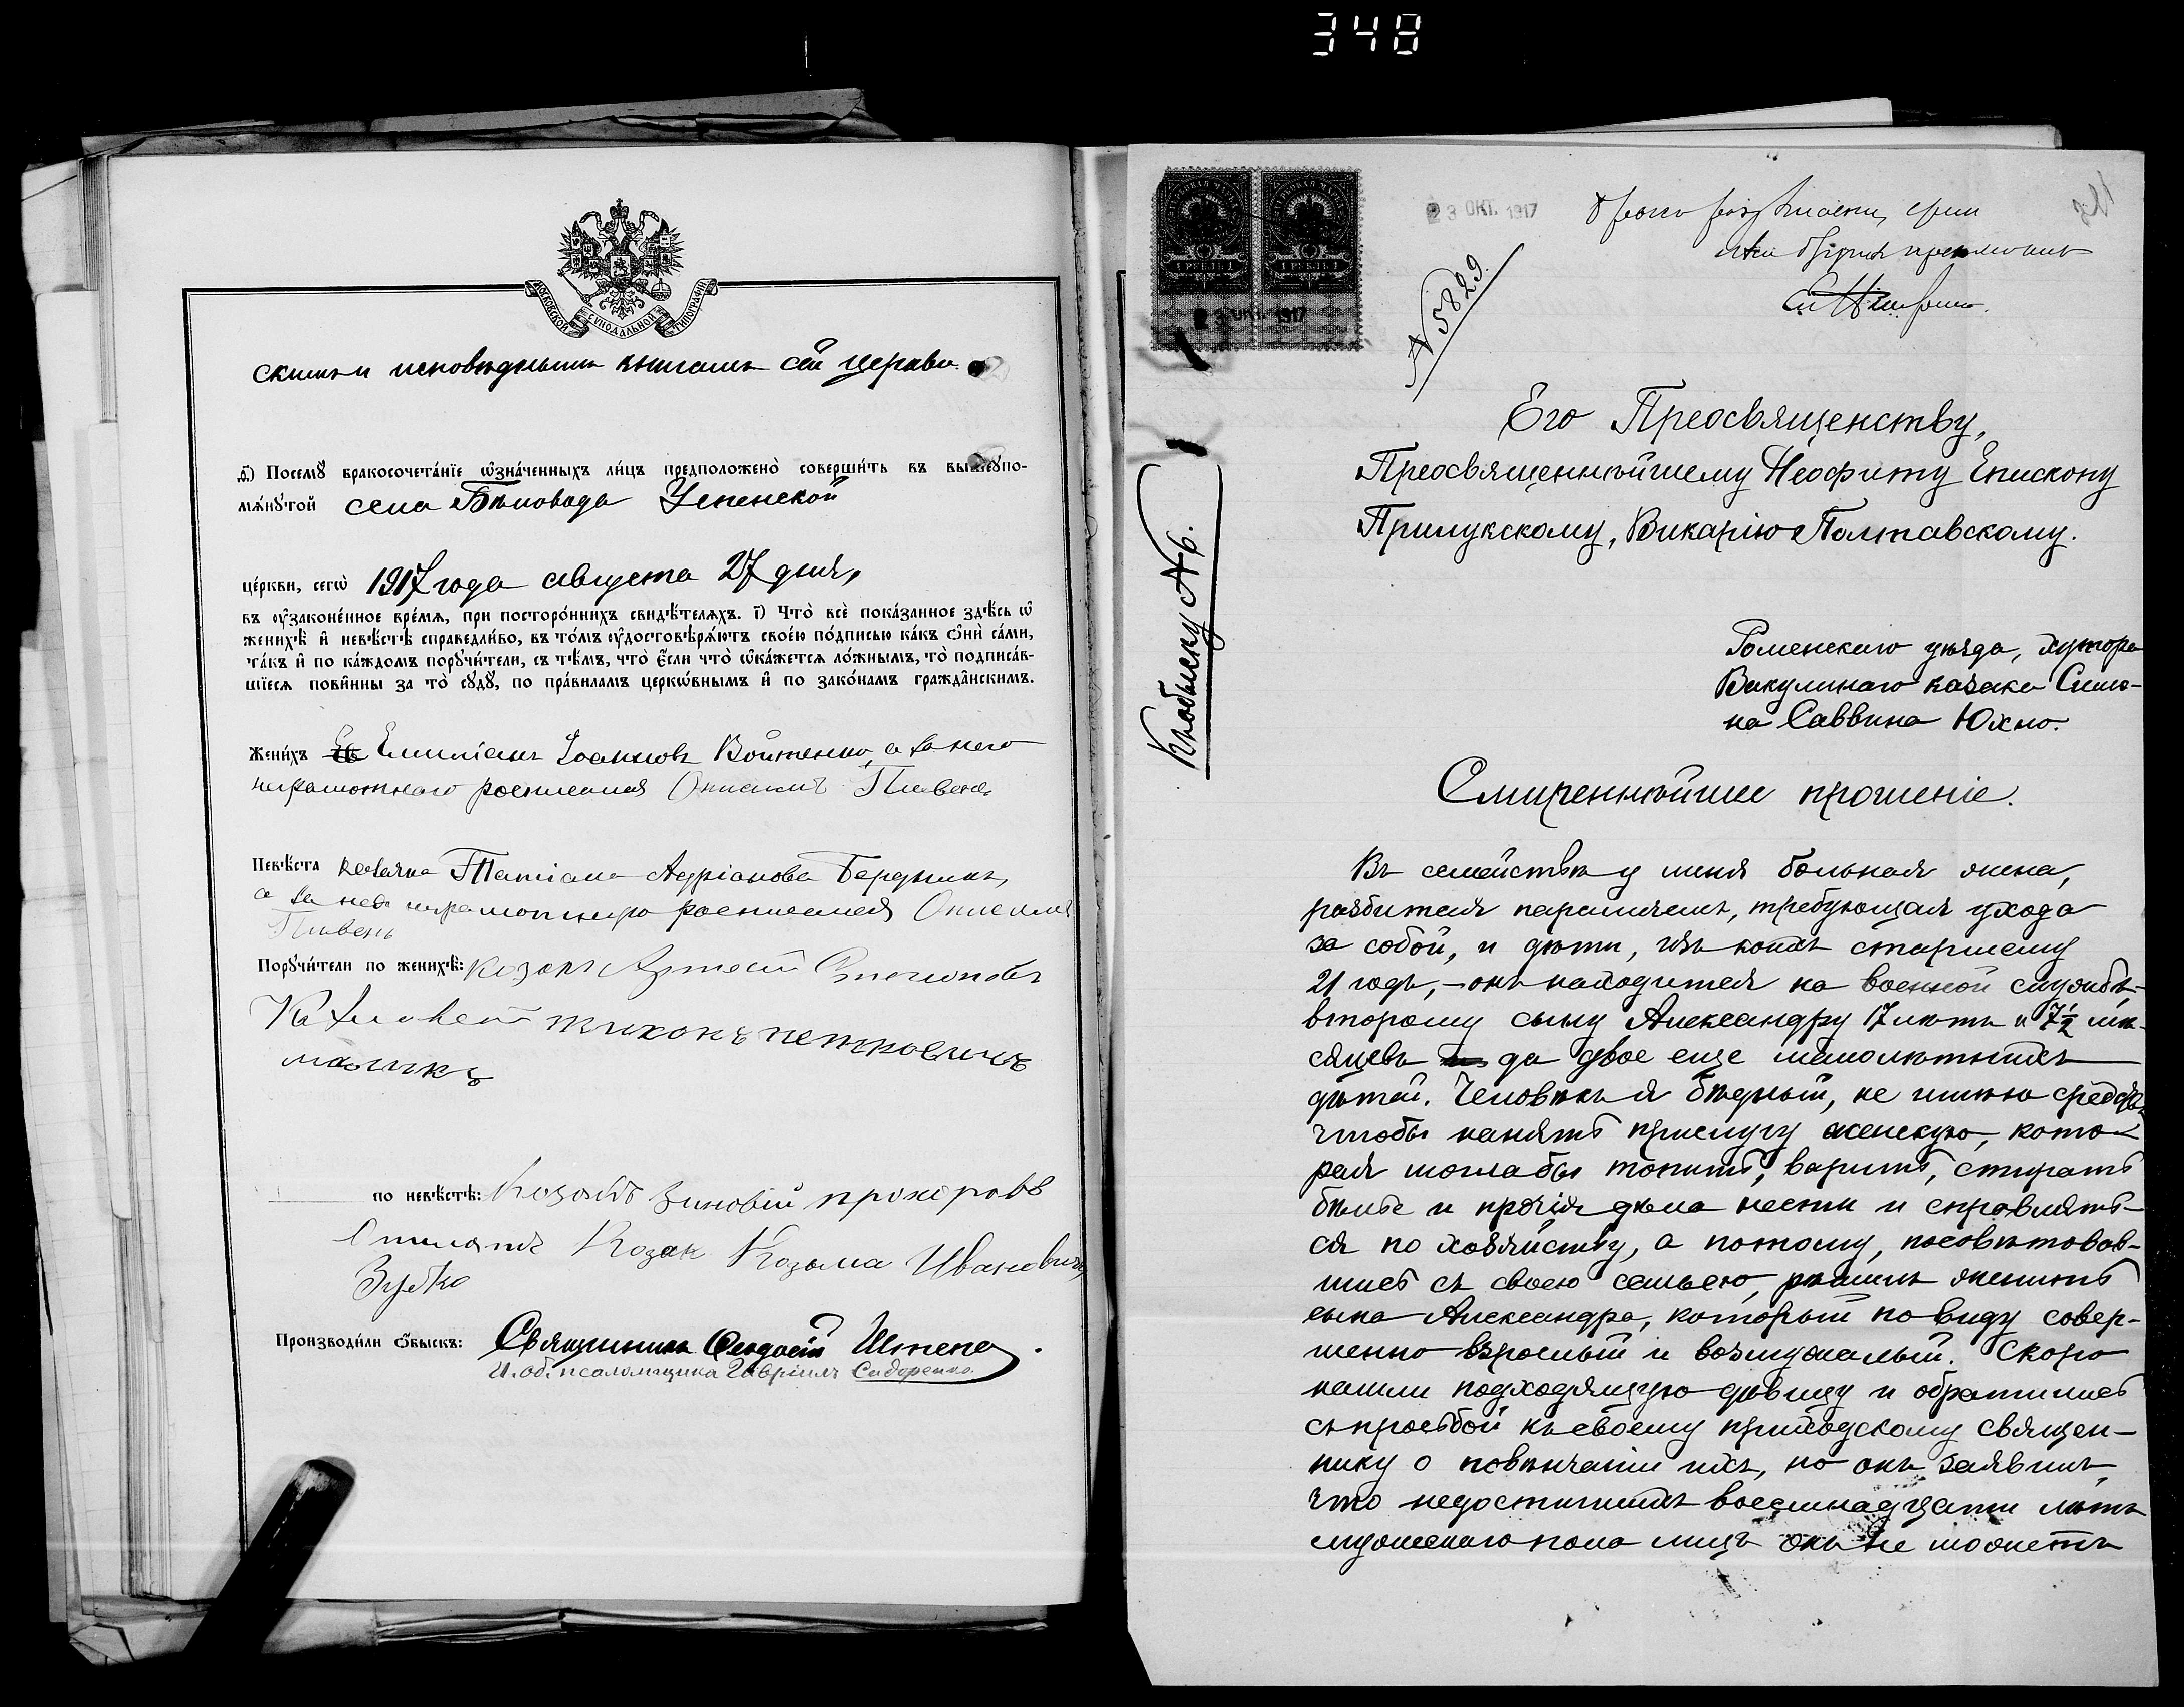 348
МОСКОВСКОЙ СѴНОДАЛЬНОЙ ТИПОГРАФІИ
скими и исповѣдными книгами сей церкви.
д҃і) Посемꙋ̀ бракосочета́нїе ѡ҆зна́ченныхъ ли́цъ предположено̀ соверши́ть въ вышеꙋпо-
мѧ́нꙋтой села Бѣловода Успенской
це́ркви, сегѡ̀ 1917 года августа 27 дня,
въ ᲂу҆законе́нное вре́мѧ, при посторо́ннихъ свидѣ́телѧхъ. і҃) Что̀ всѐ пока́занное здѣ́сь ѡ҆
женихѣ̀ и҆ невѣ́стѣ справедли́во, въ то́мъ ᲂу҆достовѣрѧ́ютъ свое́ю по́дписью ка́къ ѻ҆нѝ са́ми,
та́къ и҆ по ка́ждомъ порꙋчи́тели, съ тѣ́мъ, что̀ є҆́сли что̀ ѡ҆ка́жетсѧ ло́жнымъ, то̀ подписа́в-
шїесѧ пови́нны за то̀ сꙋдꙋ̀, по пра́виламъ церко́внымъ и҆ по зако́намъ гражда́нскимъ.
Жени́хъ Емиліанъ Іоанновъ Войтенко, а за него
неграмотнаго росписался Онисимъ Пивень
Невѣ́ста козачка Татіана Адріанова Бередникъ,
а за нея неграмотную росписался Онисимъ
Пивень
Порꙋчи́тели по женихѣ̀: козакъ
тихонъ петровичъ
по невѣ́стѣ: Козакъ зиновій прохоровъ
Козак Козьма Иванович
Производи́ли ѻ҆́быскъ: Священникъ Феодосій Штепа.
И. об. псаломщика Гавріилъ Сидоренко.
1 РУБЛЬ 1 1 РУБЛЬ 1
23 ОКТ. 1917
23 ОКТ. 1917
№ 5829.
Къ обыску № 6.
Его Преосвященству,
Преосвященнѣйшему Неофиту Епископу
Прилукскому, Викарію Полтавскому.
Роменскаго уѣзда, хутора
Викулинаго казака Симо-
на Саввина Юхно.
Смиреннѣйшее прошеніе.
Въ семействѣ у меня больная жена,
разбитая параличемъ, требующая ухода
за собой, и дѣти, изъ коихъ старшему
21 годъ,—онъ находится на военной службѣ,
второму сыну Александру 17 лѣтъ и 7½ мѣ-
сяцевъ да двое еще малолѣтнихъ
дѣтей. Человѣкъ я бѣдный, не имѣю средствъ
чтобы нанять прислугу женскую, кото-
рая могла бы топить, варить, стирать
бѣлье и прочія дѣла нести и справлять-
ся по хозяйству, а потому, посовѣтовав-
шись съ своею семьею, рѣшилъ женить
сына Александра, который по виду совер-
шенно взрослый и возмужалый. Скоро
нашли подходящую дѣвицу и обратились
съ просьбой къ своему приходскому священ-
нику о повѣнчаніи ихъ, но онъ заявилъ,
что недостигшихъ восемнадцати лѣтъ
мужескаго пола лицъ онъ не можетъ